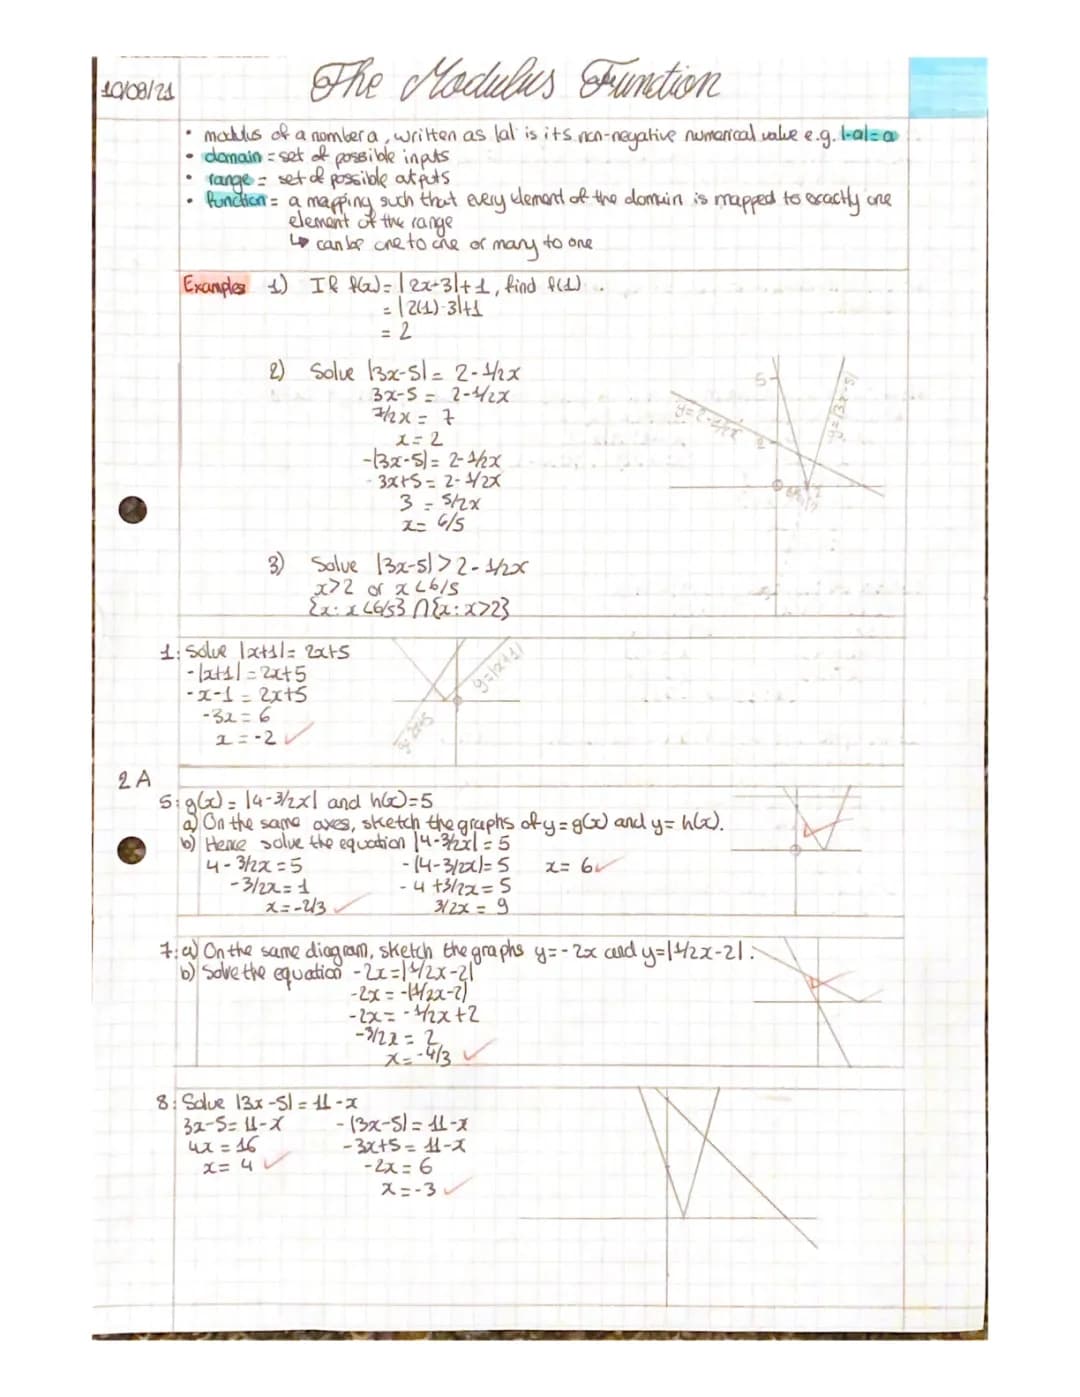 10/08/21
The Modulus Function
• modulus of a number a, written as |a| is its non-negative numerical value e.g. |-a|=a
• domain = set of possible inputs
• range = set of possible outputs
• function = a mapping such that every element of the domain is mapped to exactly one
element of the range
↳ can be one to one or many to one
Examples 1) If f(x)= |2x-3|+1, find f(1)
= |2(1)-3|+1
= 2
2) Solve |3x-5| = 2-1/2x
3x-5 = 2-1/2x
7/2x = 7
x = 2
-(3x-5) = 2-1/2x
-3x+5 = 2-1/2x
3 = 5/2x
x = 6/5
5
y=2-1/2x
y=|3x-5|
2
3) Solve |3x-5| > 2-1/2x
x>2 or x<6/5
{x: x<6/5} ∩ {x: x>2}
1: Solve |x+1| = 2x+5
-|x+1| = 2x+5
-x-1 = 2x+5
-3x = 6
x = -2 ✓
y=|x+1|
y=2x+5
2A
5: g(x) = |4-3/2x| and h(x)=5
a) On the same axes, sketch the graphs of y=g(x) and y=h(x).
b) Hence solve the equation |4-3/2x| = 5
4-3/2x = 5 -(4-3/2x) = 5 x = 6 ✓
-3/2x = 1 -4+3/2x = 5
x = -2/3 ✓ 3/2x = 9
7: a) On the same diagram, sketch the graphs y=-2x and y=|1/2x-2|.
b) Solve the equation -2x=|1/2x-2|
-2x = -(1/2x-2)
-2x = -1/2x+2
-3/2x = 2
x = -4/3 ✓
8: Solve |3x-5| = 11-x
3x-5 = 11-x -(3x-5) = 11-x
4x = 16 -3x+5 = 11-x
x = 4 ✓ -2x = 6
x = -3 ✓